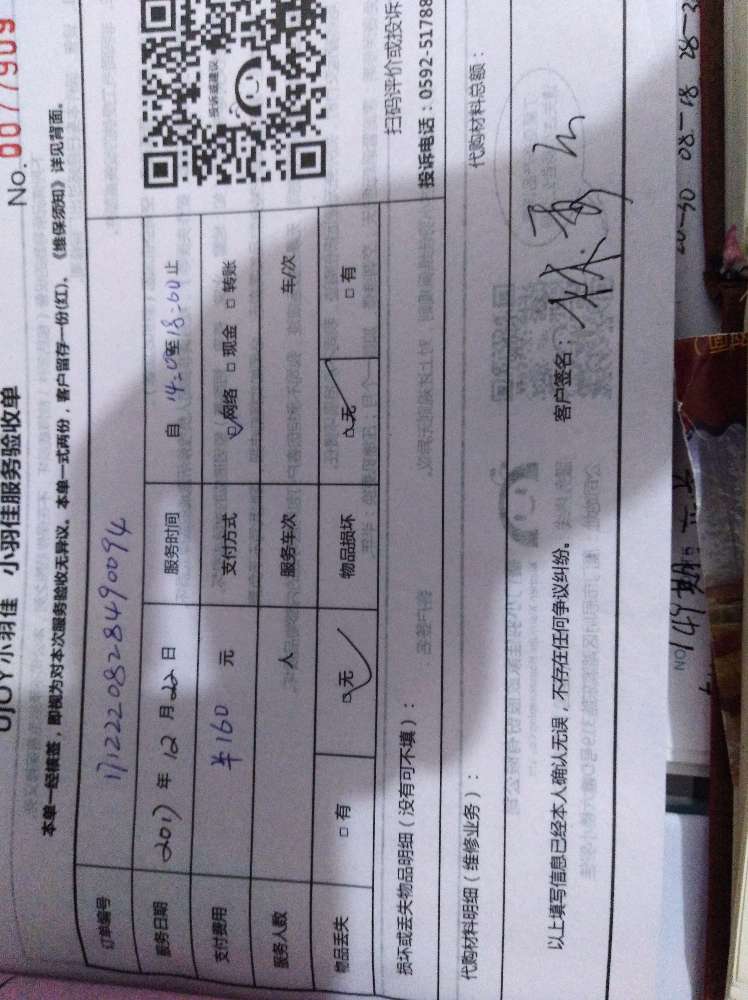 UjOY小羽佳 小羽佳服务验收单
No. 0077909
本单一经横签，即视为对本次服务验收无异议。本单一式两份，客户留存一份(红)、《维保须知》详见背面。
订单编号 1712220828490094
服务日期 2017年12月22日 服务时间 自14:0至18:00止
支付费用 ¥160 元 支付方式 ☑网络 □现金 □转账
服务人数 人 服务车次 车/次
物品丢失 □有 ☑无 物品损坏 ☑无 □有
投诉或建议
扫码评价或投诉
投诉电话：0592-51788
损坏或丢失物品明细（没有可不填）：
代购材料明细（维修业务）： 代购材料总额：
以上填写信息已经本人确认无误，不存在任何争议纠纷。 客户签名：
NO 149期
20-30 08-18 28-3